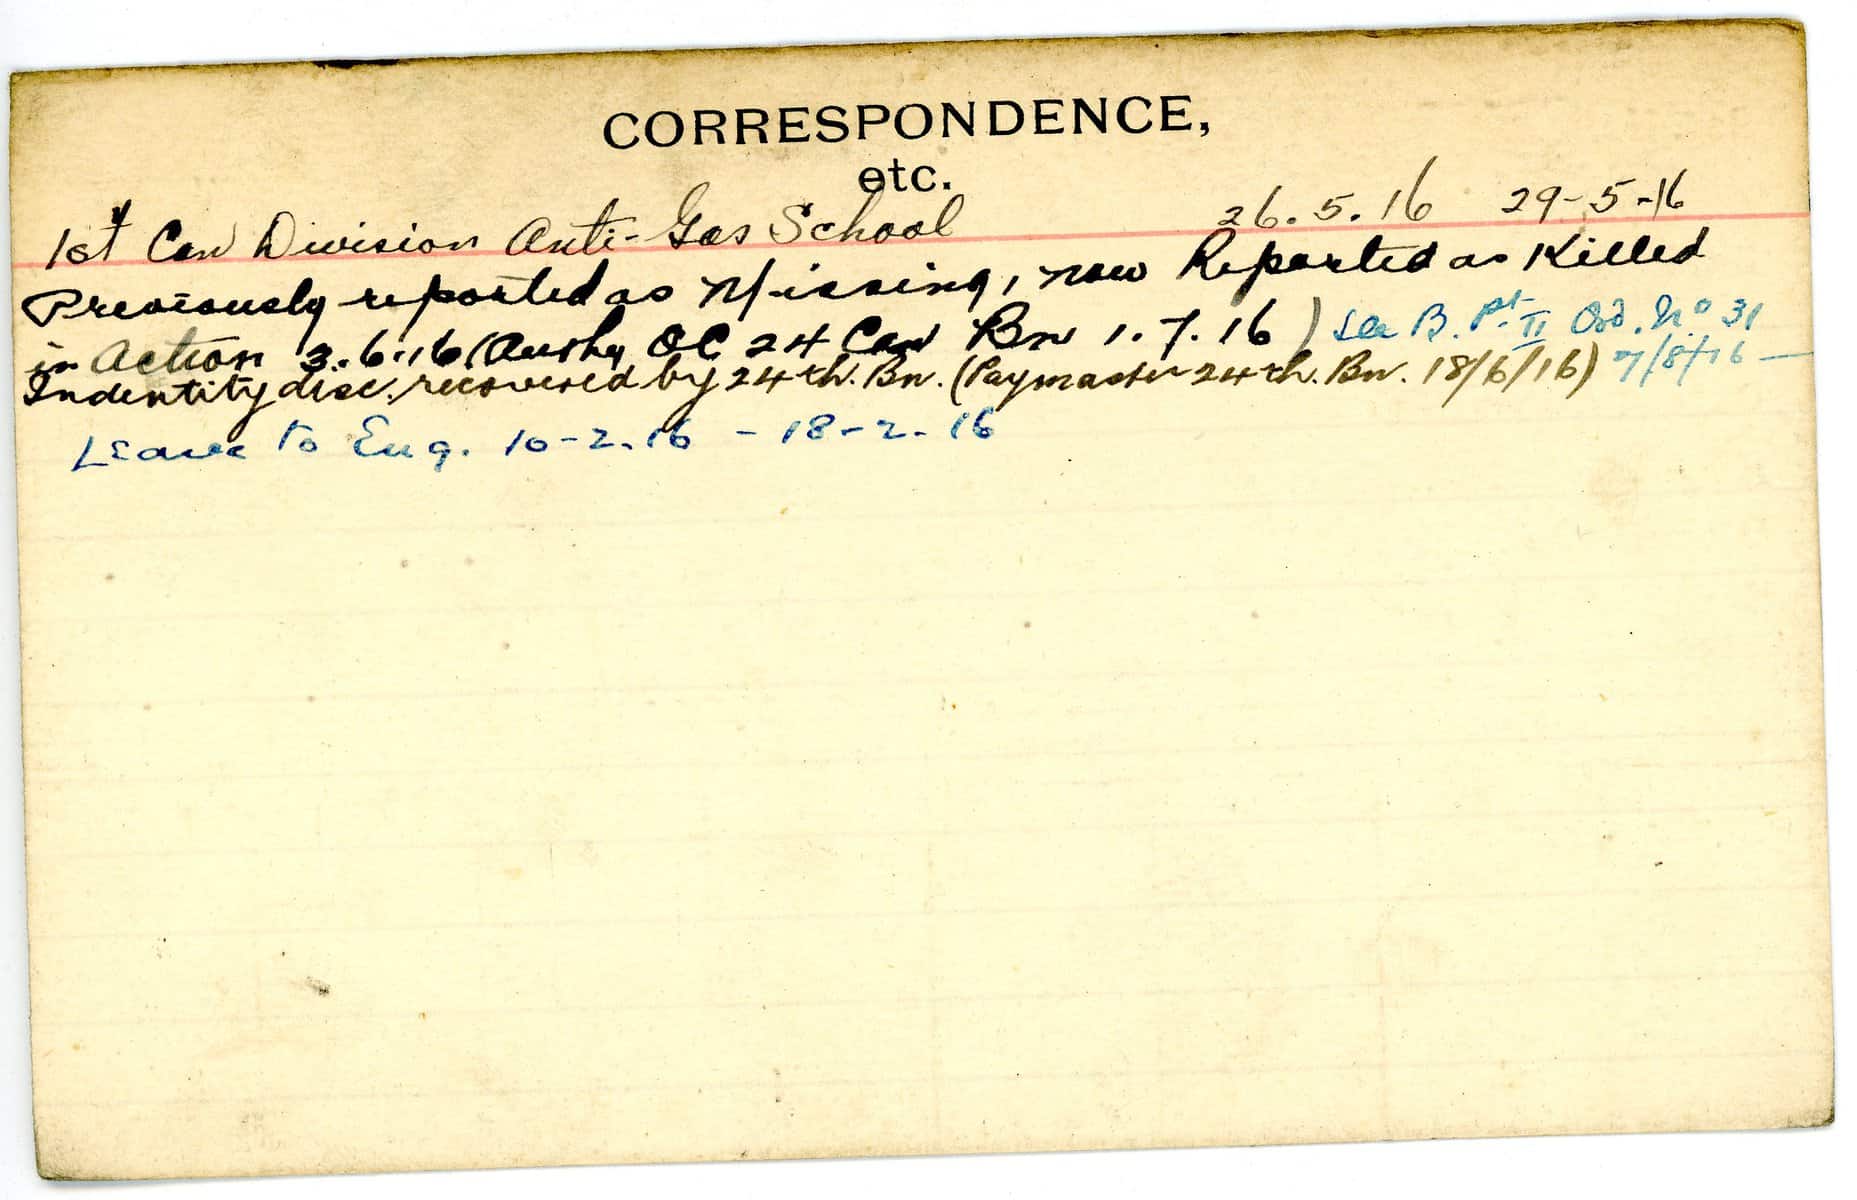 CORRESPONDENCE,
etc.
1st Can Division Anti-Gas School 26.5.16 29-5-16
Previously reported as Missing, now Reported as Killed
in Action 3.6.16 (Authy OC 24 Can Bn 1.7.16) See B. Pt II Ord. No 31
Indentity disc. recovered by 24th. Bn. (Paymaster 24th. Bn. 18/6/16) 7/8/16 —
Leave to Eng. 10-2.16 - 18-2.16